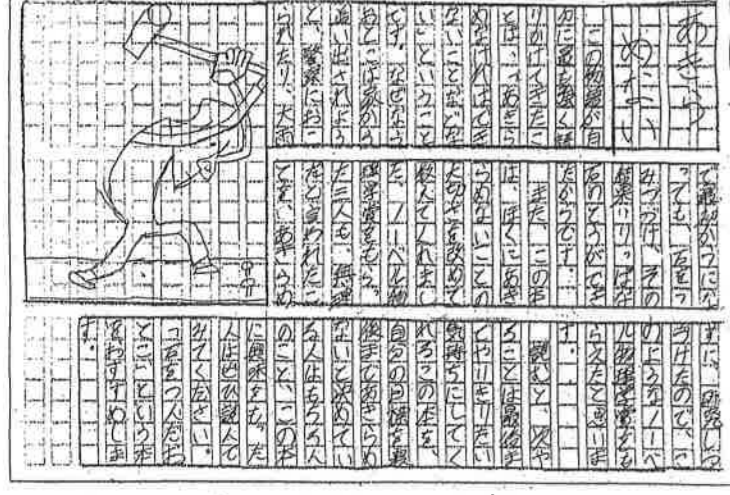 あきらめない
この物語が自
分に最も強く語
りかけてきたこ
とは、「あきら
めなければでき
ないことなどな
い」ということ
です。なぜなら
おとこは家から
追い出されよう
と、警察におこ
られたり、大雨
で最初からにな
っても、石をつ
みつづけ、その
結果、りっぱな
石のとうができ
たからです。
また、この本
は、ぼくにあき
らめないことの
大切さを改めて
教えてくれまし
た。ノーベル物
理学賞をもらっ
た三人も、無理
だと言われたこ
とを、あきらめ
ずに、研究しつ
づけたので、こ
のようなノーベ
ル物理学賞をも
らえたと思いま
す。
読むと、次や
ることは最後ま
でやりきりたい
気持ちにしてく
れるこの本を、
自分の目標を最
後まであきらめ
ないと決めてい
る人はもちろん
のこと、この本
に興味をもった
人はぜひ読んで
みてください。
「石をつんだお
とこ」という本
をおすすめしま
す。